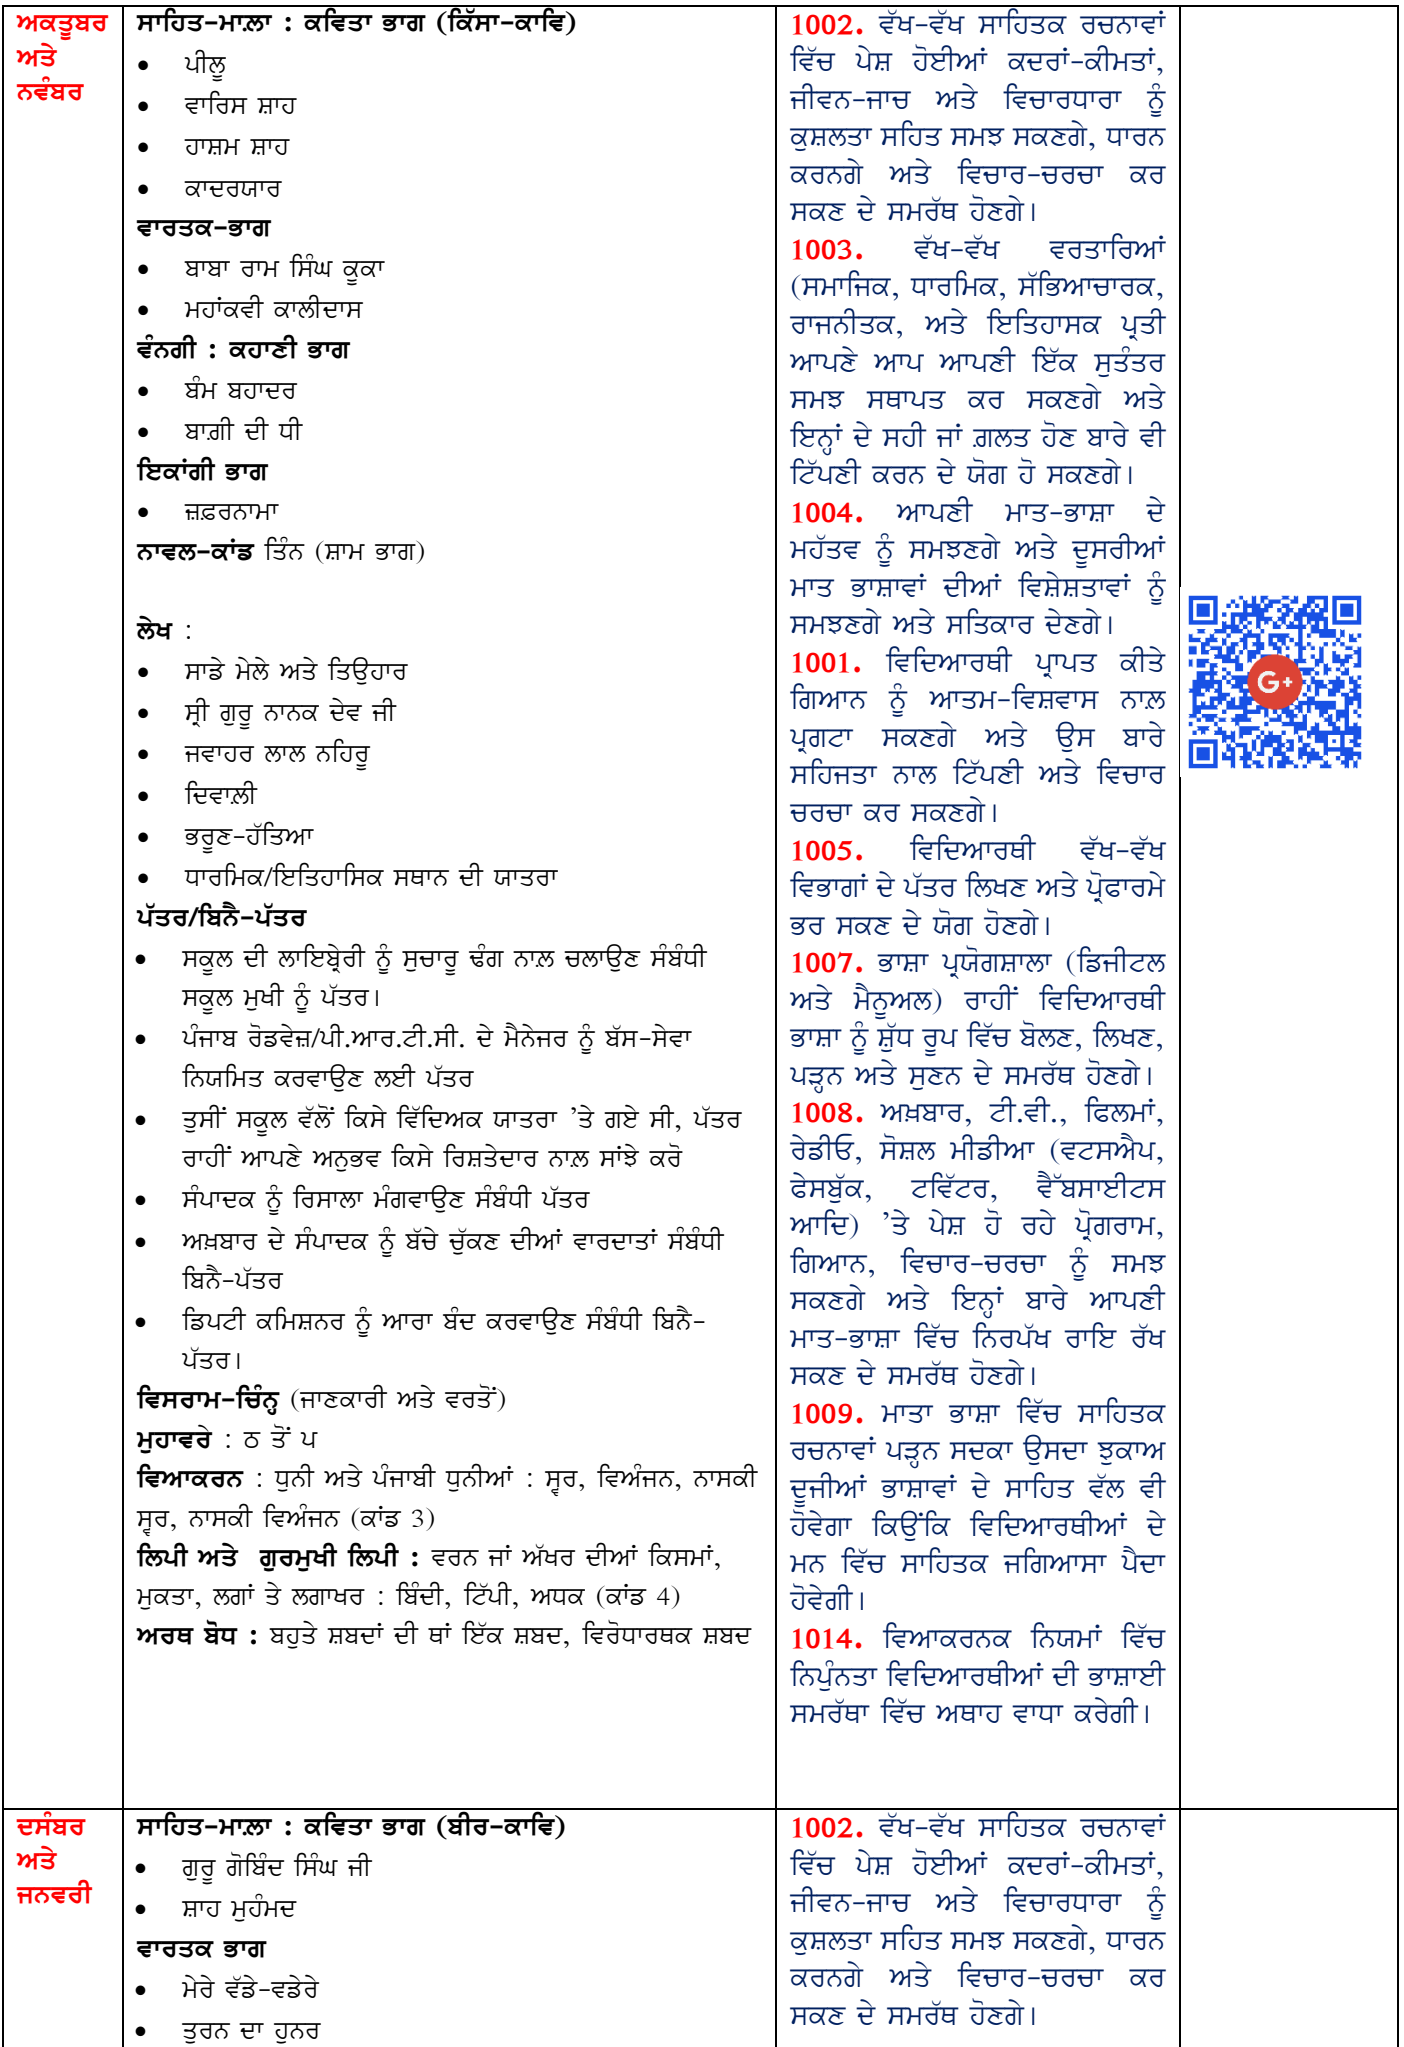 ਅਕਤੂਬਰ
ਅਤੇ
ਨਵੰਬਰ
ਸਾਹਿਤ-ਮਾਲ਼ਾ : ਕਵਿਤਾ ਭਾਗ (ਕਿੱਸਾ-ਕਾਵਿ)
• ਪੀਲੂ
• ਵਾਰਿਸ ਸ਼ਾਹ
• ਹਾਸ਼ਮ ਸ਼ਾਹ
• ਕਾਦਰਯਾਰ
ਵਾਰਤਕ-ਭਾਗ
• ਬਾਬਾ ਰਾਮ ਸਿੰਘ ਕੂਕਾ
• ਮਹਾਂਕਵੀ ਕਾਲੀਦਾਸ
ਵੰਨਗੀ : ਕਹਾਣੀ ਭਾਗ
• ਬੰਮ ਬਹਾਦਰ
• ਬਾਗ਼ੀ ਦੀ ਧੀ
ਇਕਾਂਗੀ ਭਾਗ
• ਜ਼ਫ਼ਰਨਾਮਾ
ਨਾਵਲ-ਕਾਂਡ ਤਿੰਨ (ਸ਼ਾਮ ਭਾਗ)
ਲੇਖ :
• ਸਾਡੇ ਮੇਲੇ ਅਤੇ ਤਿਉਹਾਰ
• ਸ੍ਰੀ ਗੁਰੂ ਨਾਨਕ ਦੇਵ ਜੀ
• ਜਵਾਹਰ ਲਾਲ ਨਹਿਰੂ
• ਦਿਵਾਲ਼ੀ
• ਭਰੂਣ-ਹੱਤਿਆ
• ਧਾਰਮਿਕ/ਇਤਿਹਾਸਿਕ ਸਥਾਨ ਦੀ ਯਾਤਰਾ
ਪੱਤਰ/ਬਿਨੈ-ਪੱਤਰ
• ਸਕੂਲ ਦੀ ਲਾਇਬ੍ਰੇਰੀ ਨੂੰ ਸੁਚਾਰੂ ਢੰਗ ਨਾਲ਼ ਚਲਾਉਣ ਸੰਬੰਧੀ
ਸਕੂਲ ਮੁਖੀ ਨੂੰ ਪੱਤਰ।
• ਪੰਜਾਬ ਰੋਡਵੇਜ਼/ਪੀ.ਆਰ.ਟੀ.ਸੀ. ਦੇ ਮੈਨੇਜਰ ਨੂੰ ਬੱਸ-ਸੇਵਾ
ਨਿਯਮਿਤ ਕਰਵਾਉਣ ਲਈ ਪੱਤਰ
• ਤੁਸੀਂ ਸਕੂਲ ਵੱਲੋਂ ਕਿਸੇ ਵਿੱਦਿਅਕ ਯਾਤਰਾ ’ਤੇ ਗਏ ਸੀ, ਪੱਤਰ
ਰਾਹੀਂ ਆਪਣੇ ਅਨੁਭਵ ਕਿਸੇ ਰਿਸ਼ਤੇਦਾਰ ਨਾਲ਼ ਸਾਂਝੇ ਕਰੋ
• ਸੰਪਾਦਕ ਨੂੰ ਰਿਸਾਲਾ ਮੰਗਵਾਉਣ ਸੰਬੰਧੀ ਪੱਤਰ
• ਅਖ਼ਬਾਰ ਦੇ ਸੰਪਾਦਕ ਨੂੰ ਬੱਚੇ ਚੁੱਕਣ ਦੀਆਂ ਵਾਰਦਾਤਾਂ ਸੰਬੰਧੀ
ਬਿਨੈ-ਪੱਤਰ
• ਡਿਪਟੀ ਕਮਿਸ਼ਨਰ ਨੂੰ ਆਰਾ ਬੰਦ ਕਰਵਾਉਣ ਸੰਬੰਧੀ ਬਿਨੈ-
ਪੱਤਰ।
ਵਿਸਰਾਮ-ਚਿੰਨ੍ਹ (ਜਾਣਕਾਰੀ ਅਤੇ ਵਰਤੋਂ)
ਮੁਹਾਵਰੇ : ਠ ਤੋਂ ਪ
ਵਿਆਕਰਨ : ਧੁਨੀ ਅਤੇ ਪੰਜਾਬੀ ਧੁਨੀਆਂ : ਸ੍ਵਰ, ਵਿਅੰਜਨ, ਨਾਸਕੀ
ਸ੍ਵਰ, ਨਾਸਕੀ ਵਿਅੰਜਨ (ਕਾਂਡ 3)
ਲਿਪੀ ਅਤੇ ਗੁਰਮੁਖੀ ਲਿਪੀ : ਵਰਨ ਜਾਂ ਅੱਖਰ ਦੀਆਂ ਕਿਸਮਾਂ,
ਮੁਕਤਾ, ਲਗਾਂ ਤੇ ਲਗਾਖਰ : ਬਿੰਦੀ, ਟਿੱਪੀ, ਅਧਕ (ਕਾਂਡ 4)
ਅਰਥ ਬੋਧ : ਬਹੁਤੇ ਸ਼ਬਦਾਂ ਦੀ ਥਾਂ ਇੱਕ ਸ਼ਬਦ, ਵਿਰੋਧਾਰਥਕ ਸ਼ਬਦ
1002. ਵੱਖ-ਵੱਖ ਸਾਹਿਤਕ ਰਚਨਾਵਾਂ
ਵਿੱਚ ਪੇਸ਼ ਹੋਈਆਂ ਕਦਰਾਂ-ਕੀਮਤਾਂ,
ਜੀਵਨ-ਜਾਚ ਅਤੇ ਵਿਚਾਰਧਾਰਾ ਨੂੰ
ਕੁਸ਼ਲਤਾ ਸਹਿਤ ਸਮਝ ਸਕਣਗੇ, ਧਾਰਨ
ਕਰਨਗੇ ਅਤੇ ਵਿਚਾਰ-ਚਰਚਾ ਕਰ
ਸਕਣ ਦੇ ਸਮਰੱਥ ਹੋਣਗੇ।
1003. ਵੱਖ-ਵੱਖ ਵਰਤਾਰਿਆਂ
(ਸਮਾਜਿਕ, ਧਾਰਮਿਕ, ਸੱਭਿਆਚਾਰਕ,
ਰਾਜਨੀਤਕ, ਅਤੇ ਇਤਿਹਾਸਕ ਪ੍ਰਤੀ
ਆਪਣੇ ਆਪ ਆਪਣੀ ਇੱਕ ਸੁਤੰਤਰ
ਸਮਝ ਸਥਾਪਤ ਕਰ ਸਕਣਗੇ ਅਤੇ
ਇਨ੍ਹਾਂ ਦੇ ਸਹੀ ਜਾਂ ਗ਼ਲਤ ਹੋਣ ਬਾਰੇ ਵੀ
ਟਿੱਪਣੀ ਕਰਨ ਦੇ ਯੋਗ ਹੋ ਸਕਣਗੇ।
1004. ਆਪਣੀ ਮਾਤ-ਭਾਸ਼ਾ ਦੇ
ਮਹੱਤਵ ਨੂੰ ਸਮਝਣਗੇ ਅਤੇ ਦੂਸਰੀਆਂ
ਮਾਤ ਭਾਸ਼ਾਵਾਂ ਦੀਆਂ ਵਿਸ਼ੇਸ਼ਤਾਵਾਂ ਨੂੰ
ਸਮਝਣਗੇ ਅਤੇ ਸਤਿਕਾਰ ਦੇਣਗੇ।
1001. ਵਿਦਿਆਰਥੀ ਪ੍ਰਾਪਤ ਕੀਤੇ
ਗਿਆਨ ਨੂੰ ਆਤਮ-ਵਿਸ਼ਵਾਸ ਨਾਲ਼
ਪ੍ਰਗਟਾ ਸਕਣਗੇ ਅਤੇ ਉਸ ਬਾਰੇ
ਸਹਿਜਤਾ ਨਾਲ ਟਿੱਪਣੀ ਅਤੇ ਵਿਚਾਰ
ਚਰਚਾ ਕਰ ਸਕਣਗੇ।
1005. ਵਿਦਿਆਰਥੀ ਵੱਖ-ਵੱਖ
ਵਿਭਾਗਾਂ ਦੇ ਪੱਤਰ ਲਿਖਣ ਅਤੇ ਪ੍ਰੋਫਾਰਮੇ
ਭਰ ਸਕਣ ਦੇ ਯੋਗ ਹੋਣਗੇ।
1007. ਭਾਸ਼ਾ ਪ੍ਰਯੋਗਸ਼ਾਲਾ (ਡਿਜੀਟਲ
ਅਤੇ ਮੈਨੂਅਲ) ਰਾਹੀਂ ਵਿਦਿਆਰਥੀ
ਭਾਸ਼ਾ ਨੂੰ ਸ਼ੁੱਧ ਰੂਪ ਵਿੱਚ ਬੋਲਣ, ਲਿਖਣ,
ਪੜ੍ਹਨ ਅਤੇ ਸੁਣਨ ਦੇ ਸਮਰੱਥ ਹੋਣਗੇ।
1008. ਅਖ਼ਬਾਰ, ਟੀ.ਵੀ., ਫਿਲਮਾਂ,
ਰੇਡੀਓ, ਸੋਸ਼ਲ ਮੀਡੀਆ (ਵਟਸਐਪ,
ਫੇਸਬੁੱਕ, ਟਵਿੱਟਰ, ਵੈੱਬਸਾਈਟਸ
ਆਦਿ) ’ਤੇ ਪੇਸ਼ ਹੋ ਰਹੇ ਪ੍ਰੋਗਰਾਮ,
ਗਿਆਨ, ਵਿਚਾਰ-ਚਰਚਾ ਨੂੰ ਸਮਝ
ਸਕਣਗੇ ਅਤੇ ਇਨ੍ਹਾਂ ਬਾਰੇ ਆਪਣੀ
ਮਾਤ-ਭਾਸ਼ਾ ਵਿੱਚ ਨਿਰਪੱਖ ਰਾਇ ਰੱਖ
ਸਕਣ ਦੇ ਸਮਰੱਥ ਹੋਣਗੇ।
1009. ਮਾਤਾ ਭਾਸ਼ਾ ਵਿੱਚ ਸਾਹਿਤਕ
ਰਚਨਾਵਾਂ ਪੜ੍ਹਨ ਸਦਕਾ ਉਸਦਾ ਝੁਕਾਅ
ਦੂਜੀਆਂ ਭਾਸ਼ਾਵਾਂ ਦੇ ਸਾਹਿਤ ਵੱਲ ਵੀ
ਹੋਵੇਗਾ ਕਿਉਂਕਿ ਵਿਦਿਆਰਥੀਆਂ ਦੇ
ਮਨ ਵਿੱਚ ਸਾਹਿਤਕ ਜਗਿਆਸਾ ਪੈਦਾ
ਹੋਵੇਗੀ।
1014. ਵਿਆਕਰਨਕ ਨਿਯਮਾਂ ਵਿੱਚ
ਨਿਪੁੰਨਤਾ ਵਿਦਿਆਰਥੀਆਂ ਦੀ ਭਾਸ਼ਾਈ
ਸਮਰੱਥਾ ਵਿੱਚ ਅਥਾਹ ਵਾਧਾ ਕਰੇਗੀ।
G+
ਦਸੰਬਰ
ਅਤੇ
ਜਨਵਰੀ
ਸਾਹਿਤ-ਮਾਲ਼ਾ : ਕਵਿਤਾ ਭਾਗ (ਬੀਰ-ਕਾਵਿ)
• ਗੁਰੂ ਗੋਬਿੰਦ ਸਿੰਘ ਜੀ
• ਸ਼ਾਹ ਮੁਹੰਮਦ
ਵਾਰਤਕ ਭਾਗ
• ਮੇਰੇ ਵੱਡੇ-ਵਡੇਰੇ
• ਤੁਰਨ ਦਾ ਹੁਨਰ
1002. ਵੱਖ-ਵੱਖ ਸਾਹਿਤਕ ਰਚਨਾਵਾਂ
ਵਿੱਚ ਪੇਸ਼ ਹੋਈਆਂ ਕਦਰਾਂ-ਕੀਮਤਾਂ,
ਜੀਵਨ-ਜਾਚ ਅਤੇ ਵਿਚਾਰਧਾਰਾ ਨੂੰ
ਕੁਸ਼ਲਤਾ ਸਹਿਤ ਸਮਝ ਸਕਣਗੇ, ਧਾਰਨ
ਕਰਨਗੇ ਅਤੇ ਵਿਚਾਰ-ਚਰਚਾ ਕਰ
ਸਕਣ ਦੇ ਸਮਰੱਥ ਹੋਣਗੇ।